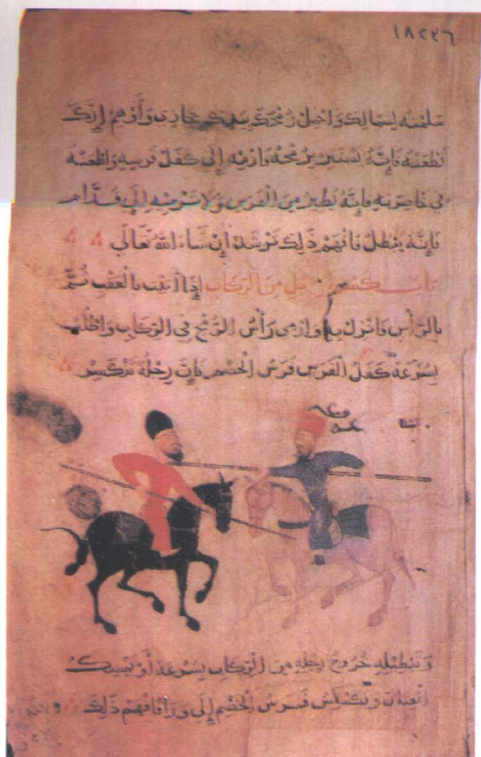 ١٨٢٢٦
لشمالك واحمل رمحك على وأوهم إنك
تطعنه فإنه يستتر برمحه وارميه إلى كفل فرسه واطعنه
في خاصرته فإنه يطير من الفرس ولا ترميه إلى قدام
فإنه يبطل فافهم ذلك ترشد إن شاء الله تعالى
باب كسر الرجل من الركاب إذا أتيت بالعقب ثم
بالرأس وانزل به وارمى رأس الرمح في الركاب واطلب
بسرعة كفل الفرس فرس الخصم فإن رجله تنكسر
وتبطيله خروج رجله من الركاب بسرعة أو يمسك
العنان فرس الخصم إلى ورا فافهم ذلك